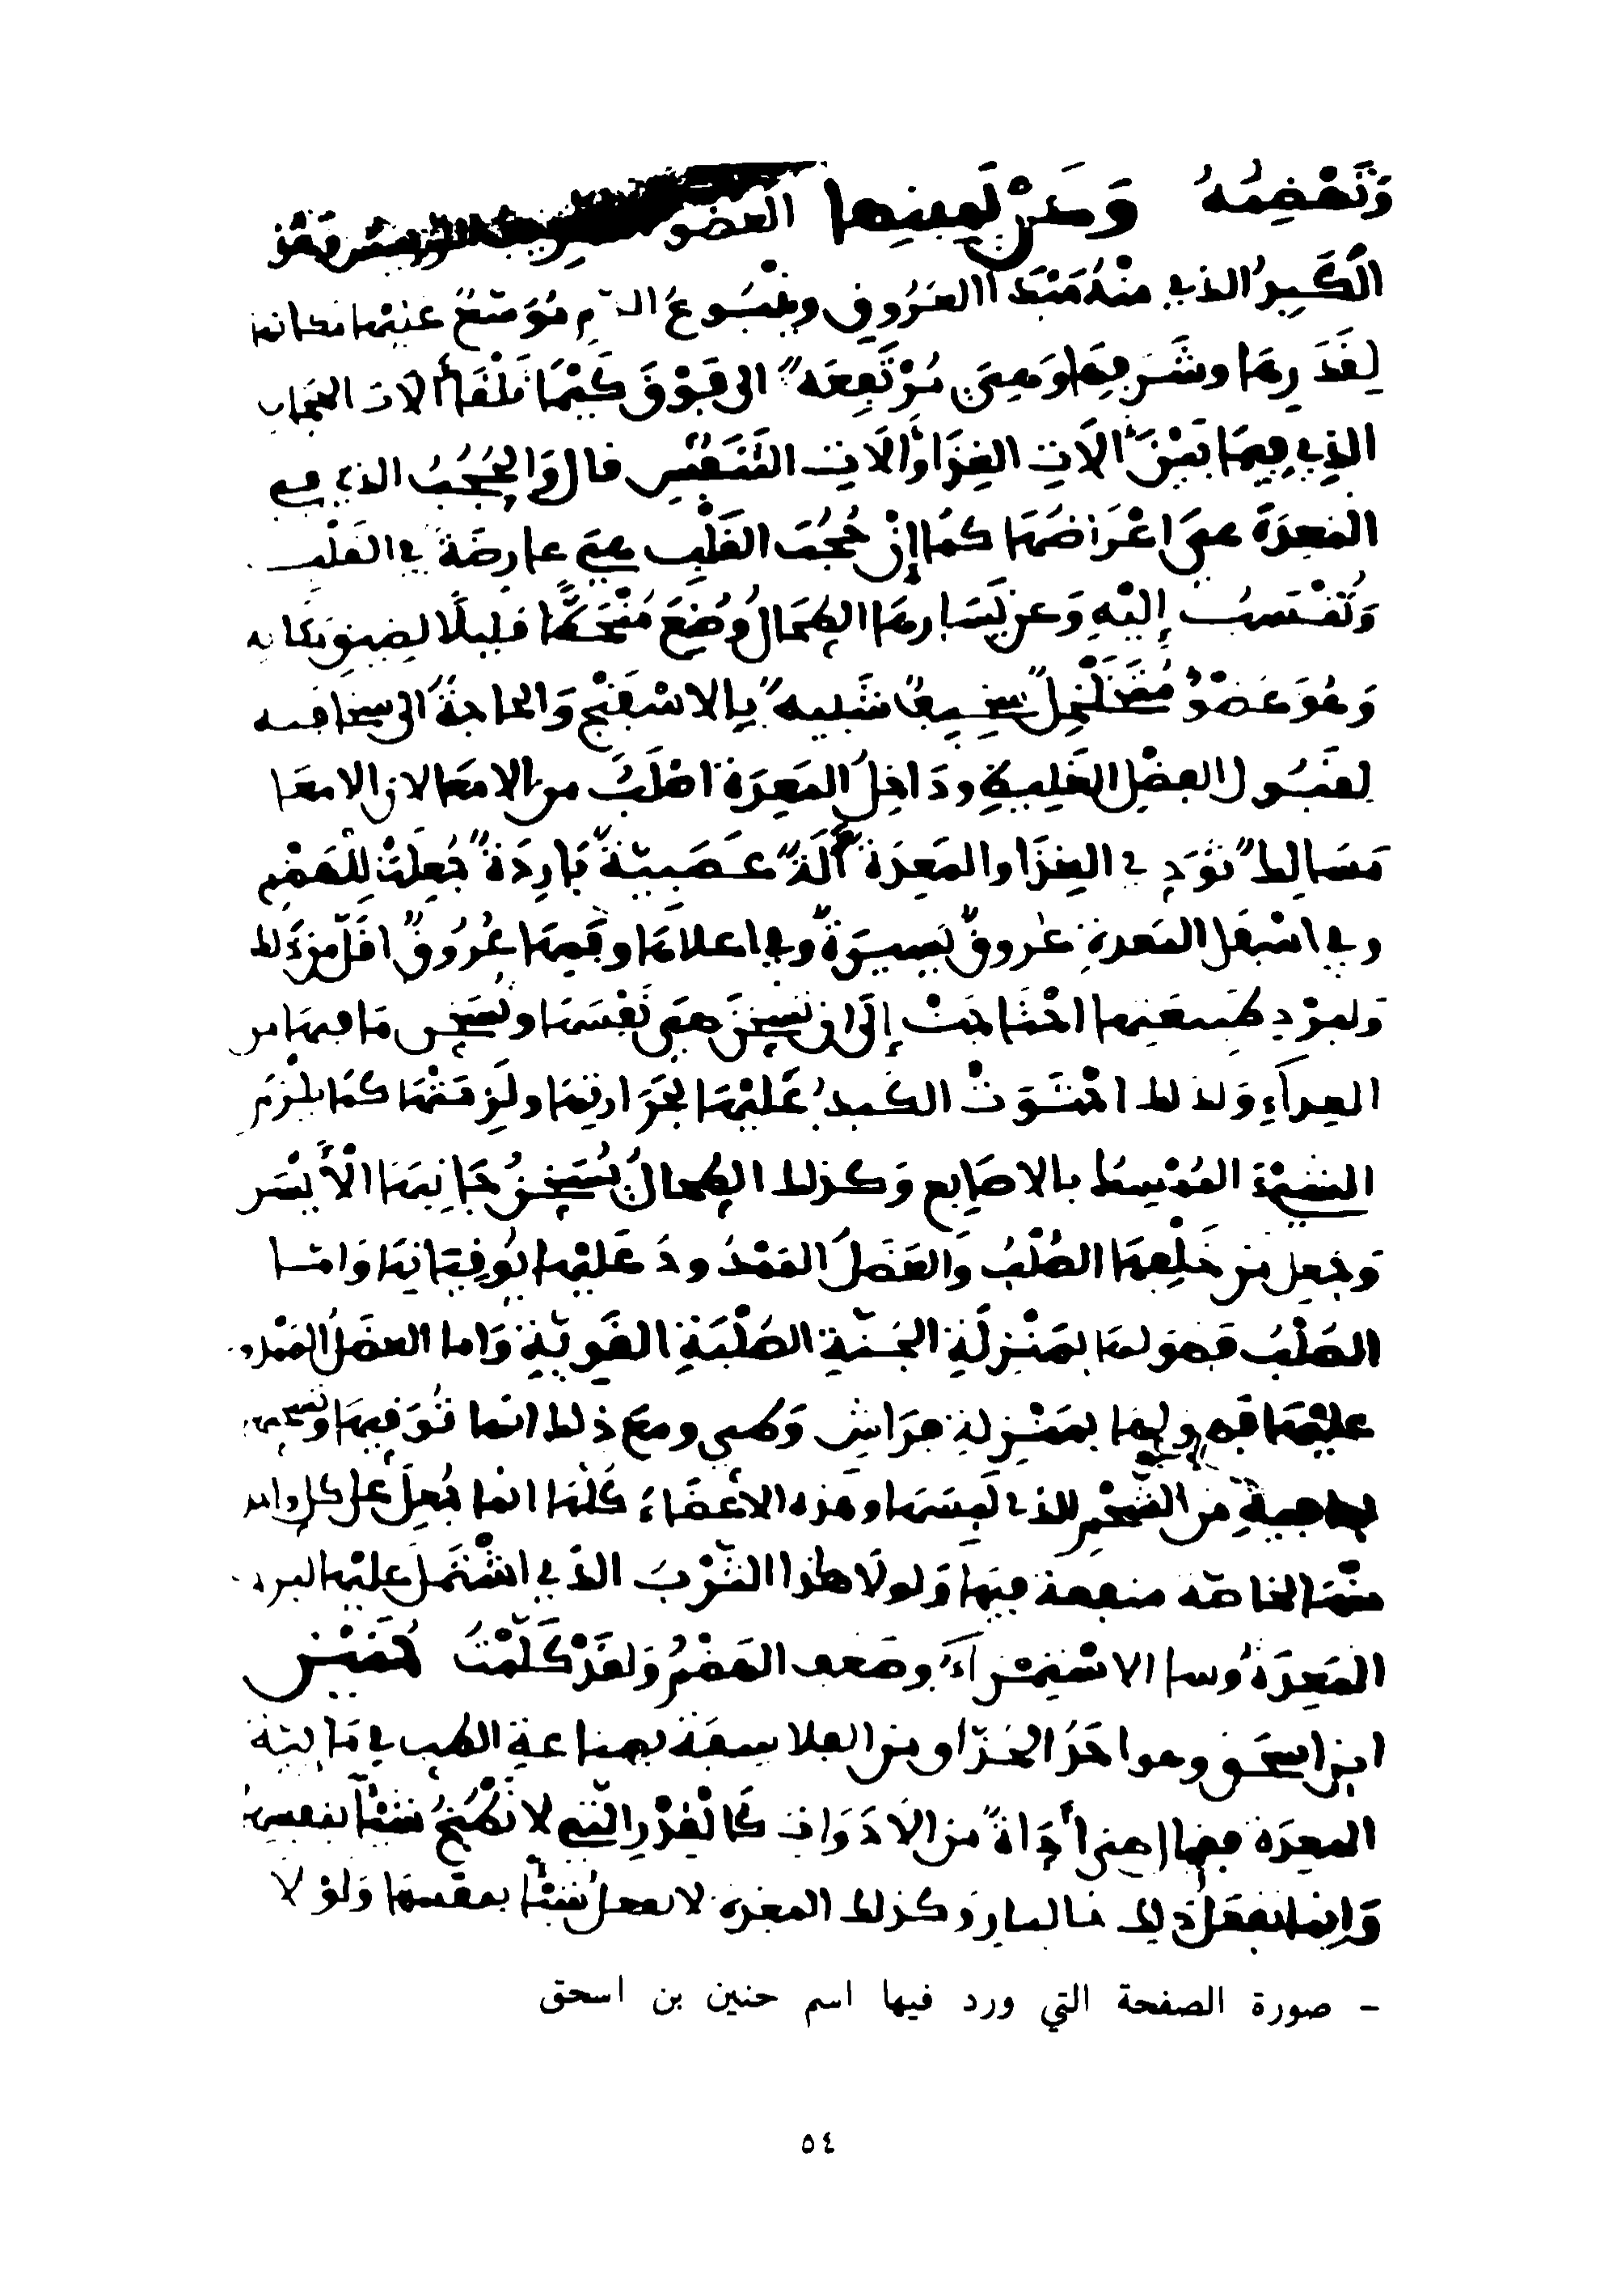 وَتَهْضِمُهُ وَعَنْ يَمِينِهَا العضو
الكَبِيرُ الذي مِنْهُ مَنْبَتُ العُرُوقِ وينْبُوعُ الدَّمِ مُوَسَّعٌ عَنْهَا مكانه
لِقَدْرِهَا وشَرَفِهَا وَهِيَ مُرْتَفِعَةٌ الى فَوْقَ كَيْمَا تَلْقَا ألآت الحِجَاب
الذي فِيمَا بَيْنَ ألآتِ الغِذَا وَألآتِ التَّنَفُّسِ قال وَالحُجُبُ الذي في
المَعِدَةِ هيَ اعْرَاضُهَا كَمَا إِنَّ حُجُبَ القَلْبِ هي عارِضَة في القَلْبِ
وَتُنْسَبُ إِلَيْهِ وَعن يَسَارِهَا الطِحَالُ وُضِعَ مُنْحَطًّا قَلِيلًا لضيقِ مَكَانِه
وَهُوَ عُضْوٌ مُتَخَلْخِلٌ سخِيفٌ شَبِيهٌ بِالاسْفَنْجِ وَالحَاجَةُ الى سخافته
لقبُول الفضْلِ الغَلِيظِ ودَاخِلُ المَعِدَة اصْلَبُ من الامعا لان الامعا
مَسَالِكٌ تُوَدِي الغِذَا والمَعِدَة أَلَةٌ عَصَبِيَّةٌ بَارِدَةٌ جُعِلَتْ لِلهَضْمِ
وفي اسْفَلِ المَعدةِ عُروقٌ يَسِيرَةٌ وفي اعلاهَا وفَمِهَا عُرُوقٌ اقَلُّ مِن ذَلك
وَلبَرْدِ طَبِيعَتِهَا احْتَاجَتْ إِلَى ان تسخنَ هِيَ نَفْسَهَا وتُسَخِن مَا فيهَا من
الغِذَآءِ وَلذلك احْتَوَتْ الكَبِدُ عَلَيْهَا بِحَرَارتِهَا ولَزِمَتْهَا كَمَا يلْزَمُ
الشيءَ المُمْسَكُ بالاصَابِع وَكَذلك الطِحَالُ يُسَخِنُ جَانِبَهَا الأَيْسَر
وَجُعِل مِن خَلْفِهَا الصُلْبُ وَالعَضَلُ المَمْدُودُ عَلَيْهَا يُوقِيَانِهَا وَامَّا
الصُلْبُ فَهُوَ لهَا بِمَنْزِلَةِ الجُنَّةِ الصُلْبَةِ القَوِيَّةِ وَاما العضَلُ المَمْدُود
عليْهَا فهو لهَا بمَنْزِلَةِ فِرَاشٍ وَطي ومعَ ذلك انَّما تُوَقِيهَا وتسخنها
من الشَّحْمِ الذي لَبِسَهَا وهذه الاعْضَاءُ كُلُّهَا انما جُعِلَ على كل واحد
منْهَا لخاصَّةِ منفعة فِيهَا وَلولَا هذا الثَّرْبَ الذي اشْتَمَلَ عليْهَا لبرد
المَعِدَةُ وسا الاسْتِمْرَآءُ وضَعف الهَضْمُ وَلقَدْ كَلَّمْتُ حُنَيْن
ابن اسحَق وهو احَدُ الحُذَّاق مِن الفلاسِفَة بصِنَاعَةِ الطِب في مَاهِيَّة
المعِدَة فقال هي أَدَاةٌ مِن الادَوَات كَالقِدْرِ الَّتِي لا تَطْبُخُ شَيْئًا بنفسِهَا
وَانما يفعَلُ ذلك فيها النار وَكذلك المعِدَة لا تفعل شَيْئًا بنفسِهَا وَلوْ لا
– صورة الصفحة التي ورد فيها اسم حنين بن اسحق
٥٤